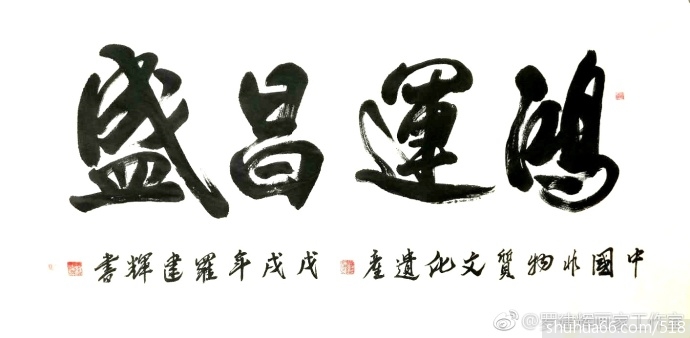 鴻運昌盛
中國非物質文化遺產 戊戌年羅建輝書
@羅建輝畫家工作室
shuhua66.com/518